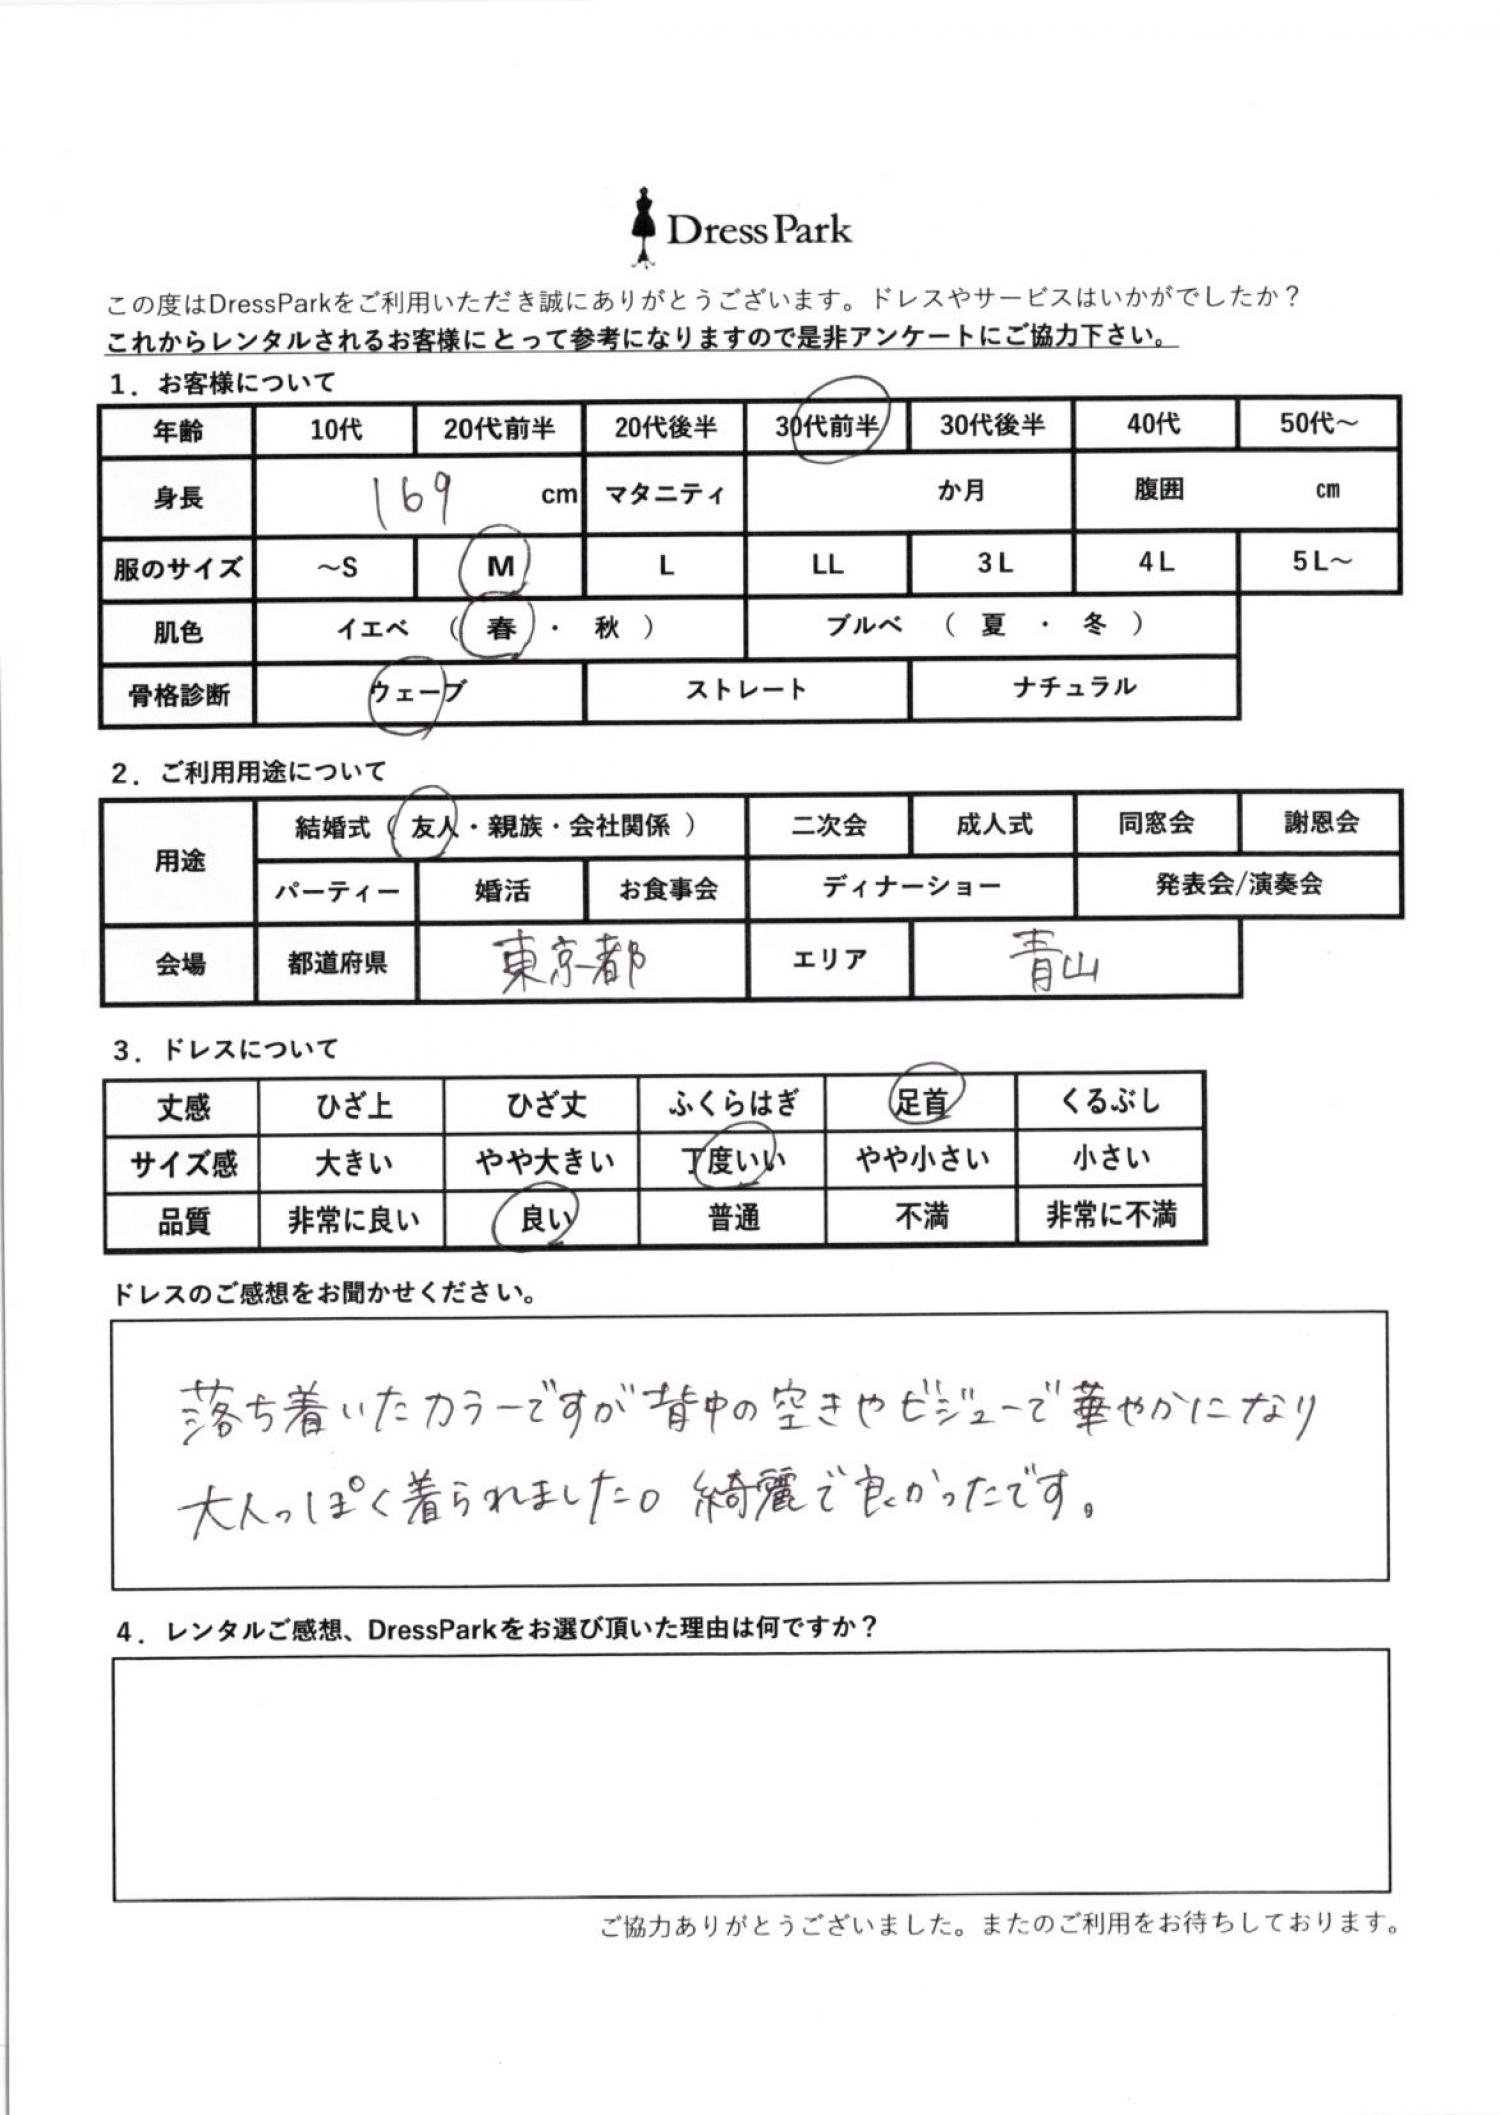 DressPark
この度はDressParkをご利用いただき誠にありがとうございます。ドレスやサービスはいかがでしたか？
これからレンタルされるお客様にとって参考になりますので是非アンケートにご協力下さい。
1．お客様について
年齢 10代 20代前半 20代後半 30代前半 30代後半 40代 50代～
身長 169 cm マタニティ か月 腹囲 cm
服のサイズ ～S M L LL 3L 4L 5L～
肌色 イエベ （ 春 ・ 秋 ） ブルベ （ 夏 ・ 冬 ）
骨格診断 ウェーブ ストレート ナチュラル
2．ご利用用途について
用途 結婚式（ 友人・親族・会社関係 ） 二次会 成人式 同窓会 謝恩会
パーティー 婚活 お食事会 ディナーショー 発表会/演奏会
会場 都道府県 東京都 エリア 青山
3．ドレスについて
丈感 ひざ上 ひざ丈 ふくらはぎ 足首 くるぶし
サイズ感 大きい やや大きい 丁度いい やや小さい 小さい
品質 非常に良い 良い 普通 不満 非常に不満
ドレスのご感想をお聞かせください。
落ち着いたカラーですが背中の空きやビジューで華やかになり
大人っぽく着られました。綺麗で良かったです。
4．レンタルご感想、DressParkをお選び頂いた理由は何ですか？
ご協力ありがとうございました。またのご利用をお待ちしております。